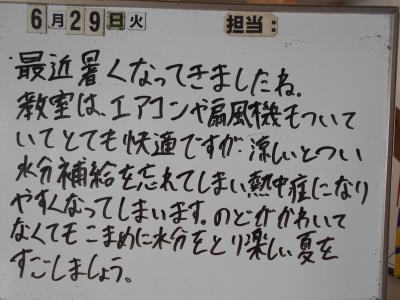 6月29日火 担当:
最近暑くなってきましたね。
教室は、エアコンや扇風機もついて
いてとても快適ですが、涼しいとつい
水分補給を忘れてしまい熱中症になり
やすくなってしまいます。のどがかわいて
なくてもこまめに水分をとり楽しい夏を
すごしましょう。